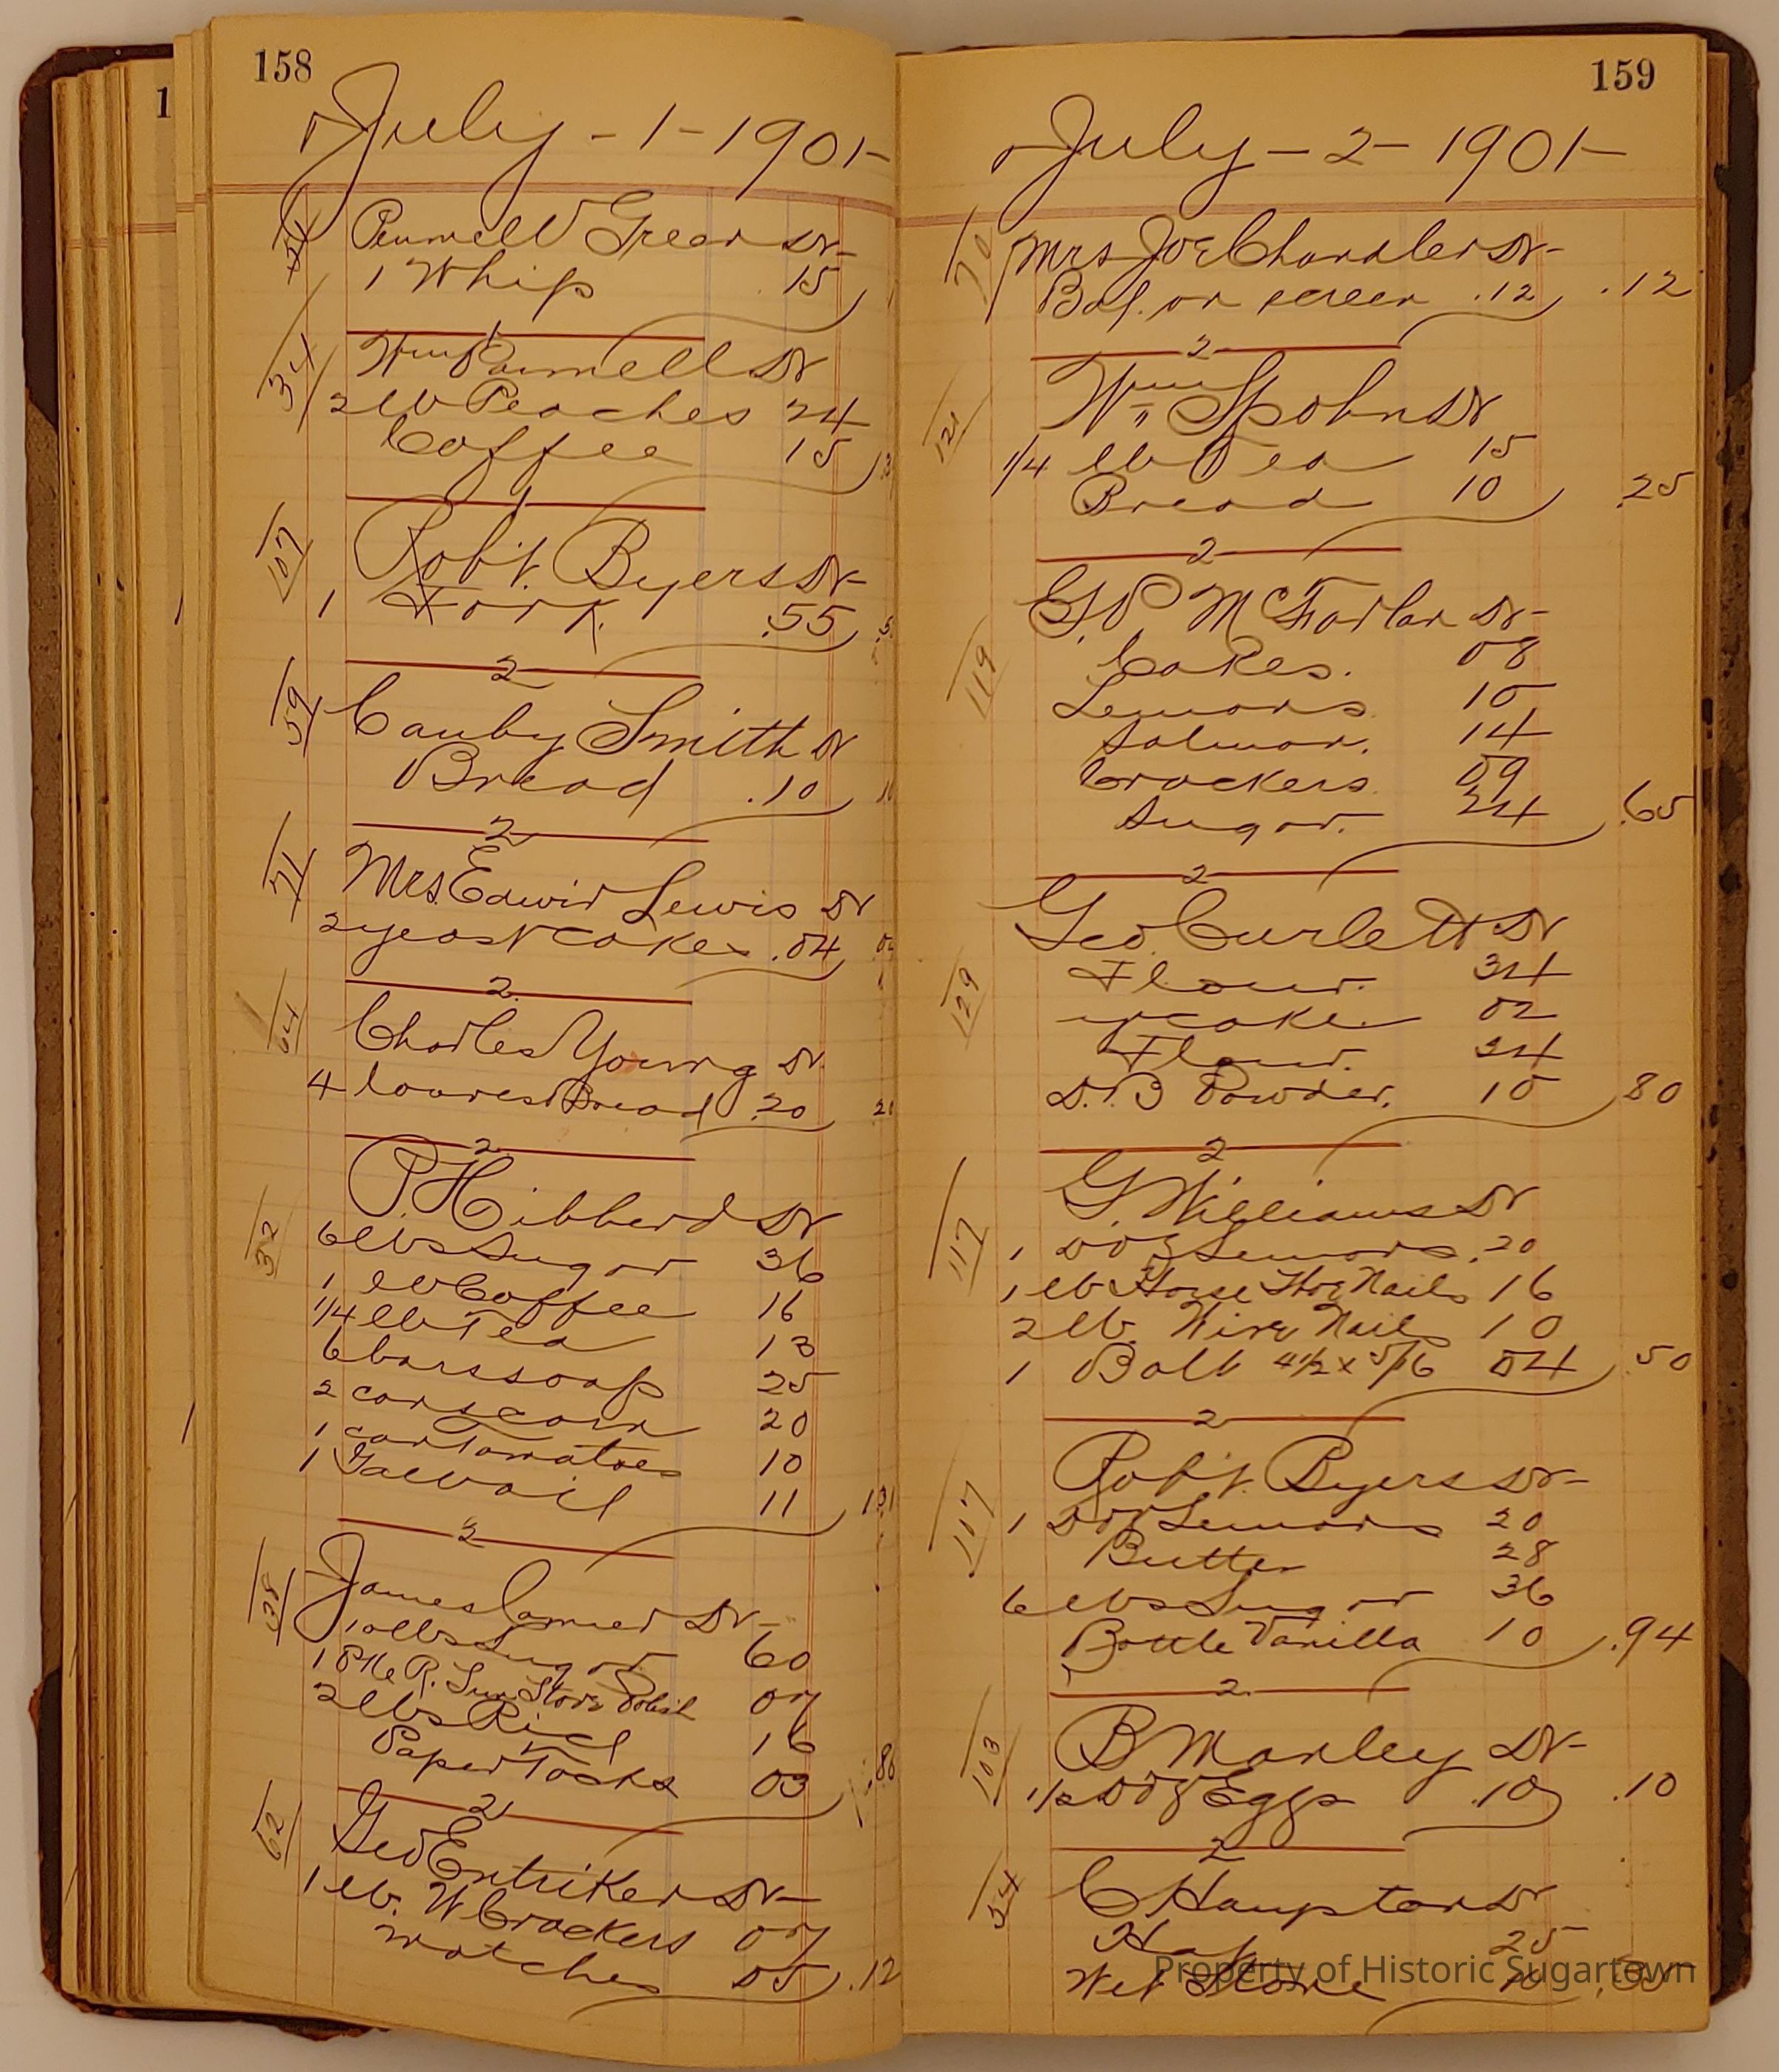 158
July - 1 - 1901 -
Pennell Green Dr -
1 Whip 15
1
34 Wm Pannell Dr
2 lb Peaches 24
Coffee 15
1
107 Rob't. Byers Dr -
1 Fork. .55
2
59 Canby Smith Dr
Bread .10 10
2
71 Mrs. Edwin Lewis Dr
2 yeast cakes .04
2
64 Charles Young Dr.
4 loaves Bread .20 20
2
P. Hibberd Dr
32 6 lbs Sugar 36
1 lb Coffee 16
1/4 lb Tea 13
6 bars soap 25
2 cans corn 20
1 can Tomatoes 10
1 Gal oil 11 1.31
2
38 James Dr -
10 lbs Sugar 60
1 Pke R. Sun Stove Polish 07
2 lbs Rice 16
Paper Tacks 03 .86
2
62 Geo Entriken Dr -
1 lb. W Crackers 07
matches 05 .12
159
July - 2 - 1901 -
70 Mrs Joe Chandler Dr -
Bal. on screen .12 .12
2
121 Wm Spohn Dr
1/4 lb Tea 15
Bread 10 .25
2
G.P. McFarlan Dr -
119 Cakes. 08
Lemons 10
Salmon. 14
Crackers. 09
Sugar. 24 .65
2
Geo. Curlett Dr
129 Flour. 34
ycake 02
Flour. 34
D.B Powder. 10 80
2
117 G. Williams Dr
1 Doz Lemons .20
1 lb Horse Shoe Nails 16
2 lb. Wire Nails 10
1 Bolt 4 1/2 x 5/16 04 .50
2
107 Rob't. Byers Dr -
1 Doz Lemons 20
Butter 28
6 lbs Sugar 36
Bottle Vanilla 10 .94
2
103 B Manley Dr -
1/2 Doz Eggs .10 .10
2
54 C. Haupton Dr
25
Wet Stone
Property of Historic Sugartown